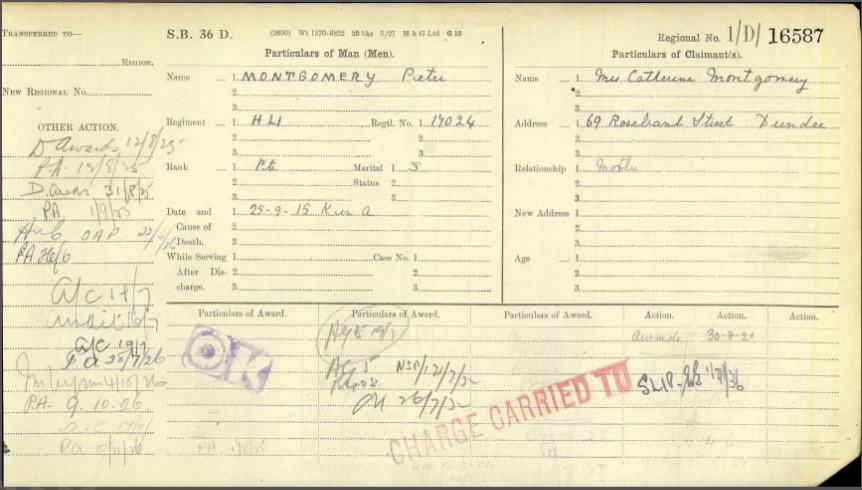 TRANSFERRED TO—
REGION.
NEW REGIONAL No.
OTHER ACTION.
D Awards 12/8/25
PA. 18/8/25
D. Awards 31/8/25
PA. 1/9/25
OAP
PA 26/6
A/C 14/7
Audit 16/7
A/C 19/7
P.A. 9.10.26
PA 15/11/26
S.B. 36 D. (2690) Wt 1570-6852 20 bks 5/21 M & G Ltd G 16
Particulars of Man (Men).
Name 1. MONTGOMERY Peter
2.
3.
Regiment 1. HLI Regtl. No. 1. 17024
2. 2.
3. 3.
Rank 1. Pte Marital 1. S
2. Status 2.
3. 3.
Date and 1. 25-9-15 K in A
Cause of 2.
Death. 3.
While Serving 1. Case No. 1.
After Dis- 2. 2.
charge. 3. 3.
Regional No. 1/D/ 16587
Particulars of Claimant(s).
Name 1. Mrs Catherine Montgomery
2.
3.
Address 1. 69 Rosebank Street Dundee
2.
3.
Relationship 1. Mother
2.
3.
New Address 1.
2.
3.
Age 1.
2.
3.
Particulars of Award. Particulars of Award. Particulars of Award. Action. Action. Action.
OK
Awards 30-9-21
AG 5 NSP/121/7/32
OK 26/7/32
CHARGE CARRIED TO
SLIP